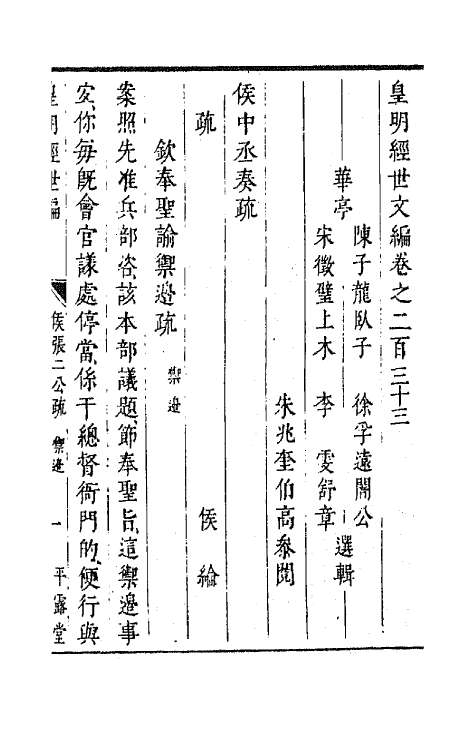 皇明經世文編卷之二百三十三
華亭
陳子龍臥子　徐孚遠闇公
宋徵璧上木　李　雯舒章
選輯
朱兆奎伯高叅閱
侯中丞奏疏
疏　侯綸
欽奉聖諭禦邊疏　禦邊
案照先准兵部咨該本部議題節奉聖旨這禦邊事
安你每既會官議處停當係干總督衙門的便行與
皇明經世編　侯張二公疏　禦邊　一　平露堂